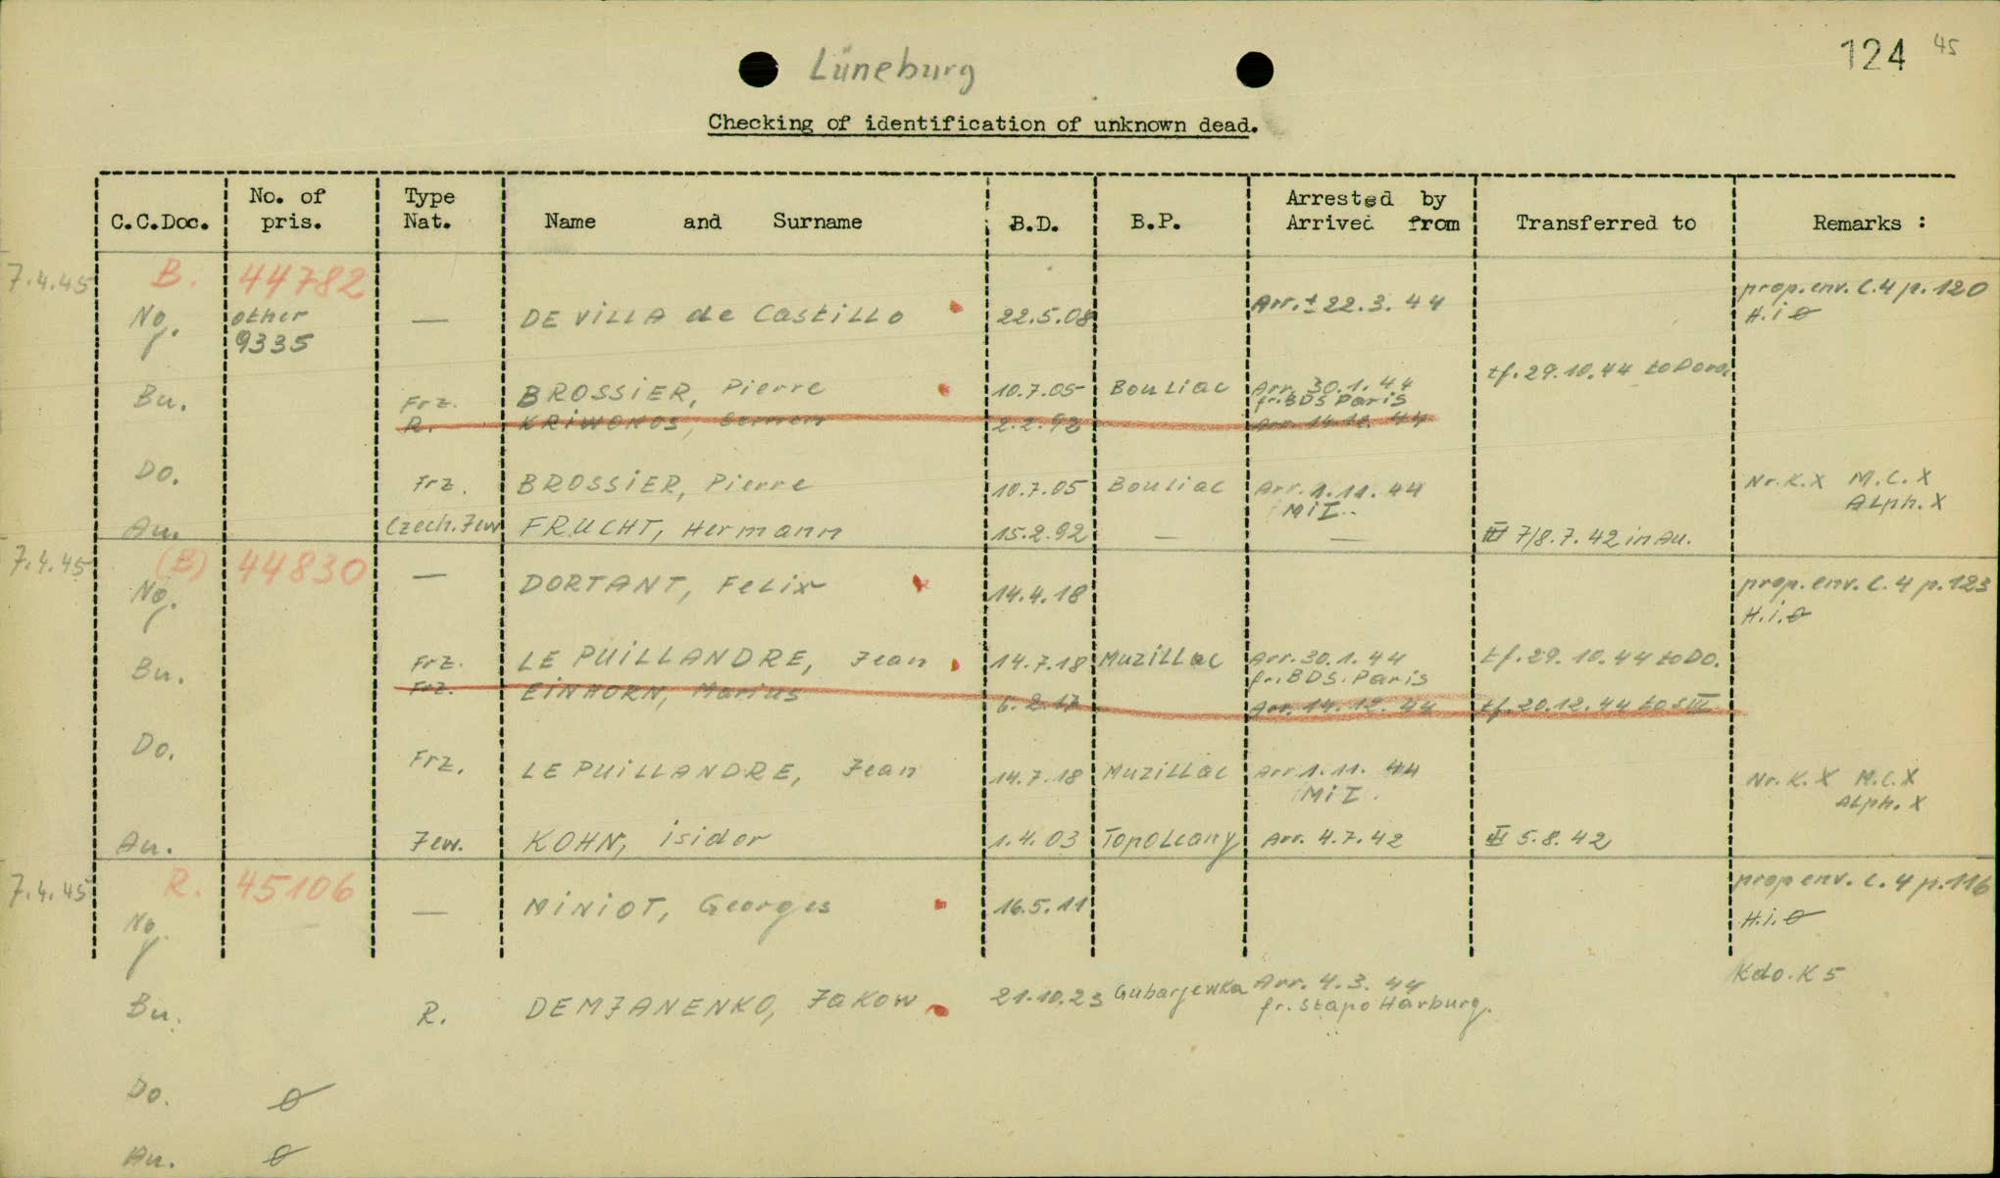 Lüneburg
124 45
Checking of identification of unknown dead.
C.C.Doc. No. of pris. Type Nat. Name and Surname B.D. B.P. Arrested by Arrived from Transferred to Remarks :
7.4.45 B. 44782 prop. env. C.4 p. 120
Ng. other — DE ViLLA de Castillo 22.5.08 Arr. ± 22.3.44 H.i ø
9335
Bu. Frz. BROSSiER, Pierre 10.7.05 Bouliac Arr. 30.1.44 tf. 29.10.44 to Dora
fr. BDS Paris
R. KRiWONOS, 2.2.93 Arr. 14.12.44
Do. Frz. BROSSiER, Pierre 10.7.05 Bouliac Arr. 1.11.44 Nr.K.X M.C.X
Mi I. ALph.X
Au. Czech.Jew FRUCHT, Hermann 15.2.92 — — 7/8.7.42 in Au.
7.4.45 (B) 44830 — DORTANT, Felix 14.4.18 prop. env. C.4 p. 123
Ng. H.i. ø
Bu. Frz. LE PUiLLANDRE, Jean 14.7.18 Muzillac Arr. 30.1.44 tf. 29.10.44 to Do.
fr. BDS. Paris
Frz. EiNHORN, Marius 6.2.17 Arr. 14.12.44 tf. 20.12.44 to SIII
Do. Frz. LE PUiLLANDRE, Jean 14.7.18 Muzillac Arr 1.11.44 Nr.K.X M.C.X
Mi I. ALph.X
Au. Jew. KOHN, isidor 1.4.03 Topolcany Arr. 4.7.42 5.8.42
7.4.45 R. 45106 prop env. C.4 p. 116
Ng — MiNiOT, Georges 16.5.11 H.i. ø
Kdo. K 5
Bu. R. DEMJANENKO, Jakow 21.10.23 Gubarjewka Arr. 4.3.44
fr. Stapo Harburg.
Do. ø
Au. ø